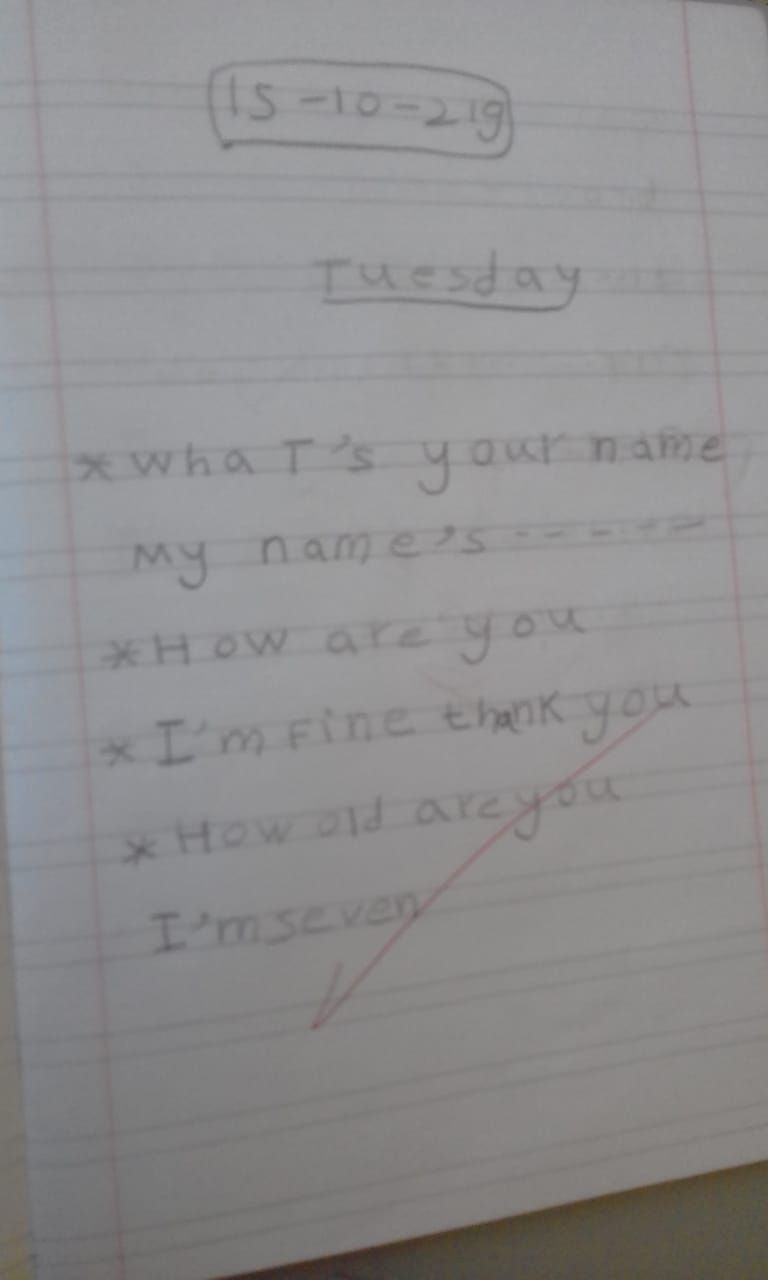 15-10-219
Tuesday
* whaT's your name
My name's ------
* How are you
* I'm Fine thank you
* How old are you
I'm seven